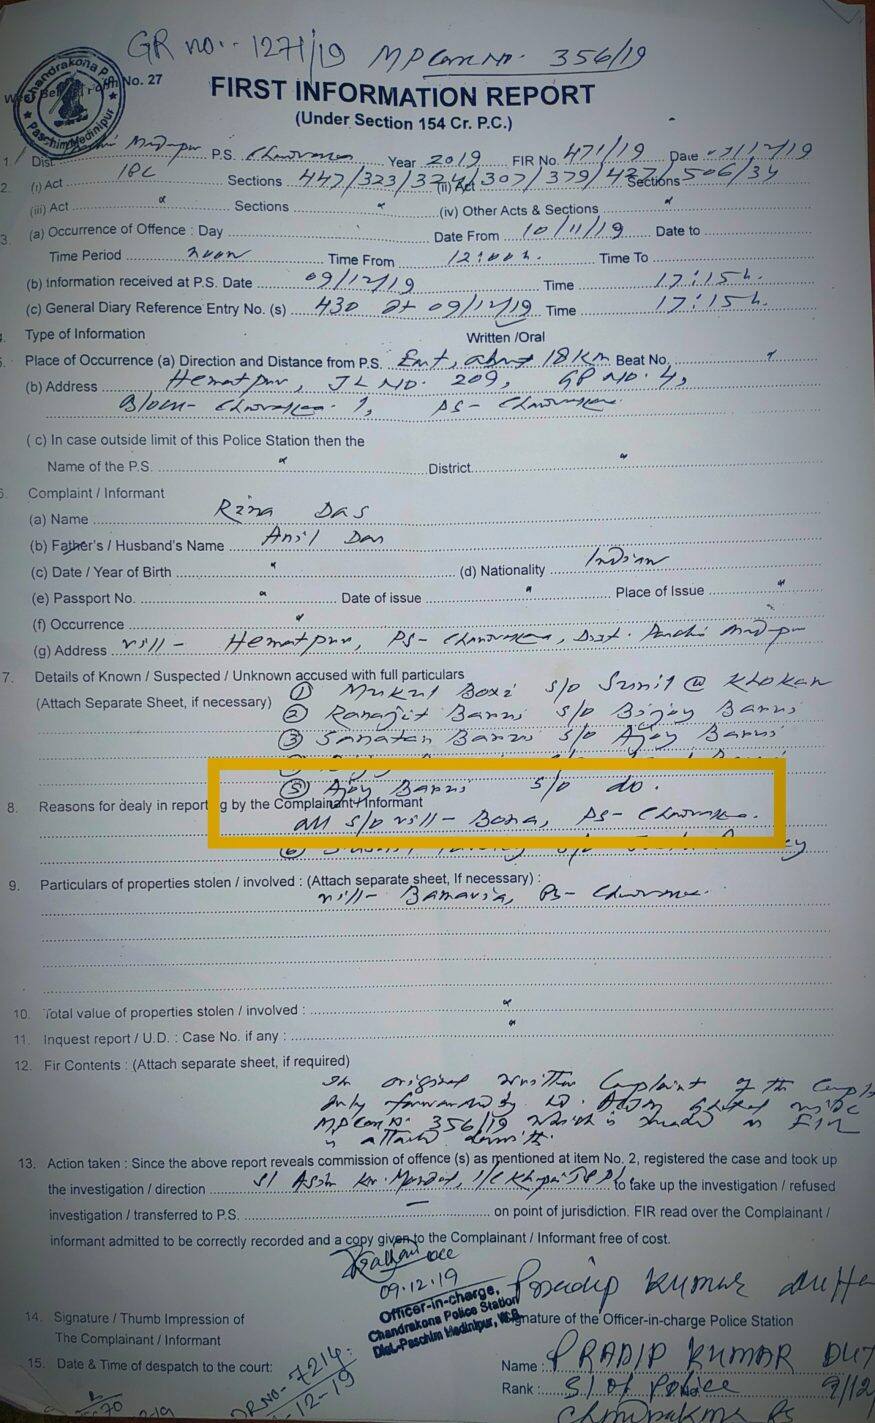 GR no.. 1271/19 MP Case No. 356/19
Chandrakona P.S.
Paschim Medinipur
Form No. 27
FIRST INFORMATION REPORT
(Under Section 154 Cr. P.C.)
1. Dist. P.S. Year 2019 FIR No. 471/19 Date
2. (i) Act IPC Sections 447/323/324/307/379/427/506/34 (ii) Act Sections
(iii) Act Sections (iv) Other Acts & Sections
3. (a) Occurrence of Offence : Day Date From 10/11/19 Date to
Time Period noon Time From 12:00 h. Time To
(b) Information received at P.S. Date 09/12/19 Time 17:15 h.
(c) General Diary Reference Entry No. (s) 430 dt 09/12/19 Time 17:15 h.
Type of Information Written /Oral
Place of Occurrence (a) Direction and Distance from P.S. East, about 18 Km Beat No.
(b) Address Hematpur, JL NO. 209, GP NO. 4,
Block- 1, PS-
(c) In case outside limit of this Police Station then the
Name of the P.S. District
6. Complaint / Informant
(a) Name Rina Das
(b) Father's / Husband's Name Anil Das
(c) Date / Year of Birth (d) Nationality Indian
(e) Passport No. Date of issue Place of Issue
(f) Occurrence
(g) Address vill- Hematpur, PS- Dist.
7. Details of Known / Suspected / Unknown accused with full particulars
① Mukul Boxi s/o Sunil @ Khokan
(Attach Separate Sheet, if necessary) ② Ranajit Barui s/o Bijoy Barui
③ Sanatan Barui s/o Ajoy Barui
⑤ Ajoy Barui s/o do.
8. Reasons for dealy in reporting by the Complainant / Informant
all s/o vill- Bona, PS-
⑥ s/o
9. Particulars of properties stolen / involved : (Attach separate sheet, If necessary) :
vill- PS-
10. Total value of properties stolen / involved :
11. Inquest report / U.D. : Case No. if any :
12. Fir Contents : (Attach separate sheet, if required)
The original written Complaint of the
duly forwarded by Ld. ACJM Ghatal vide
MP Case No. 356/19 which is treated as FIR
is attached
13. Action taken : Since the above report reveals commission of offence (s) as mentioned at item No. 2, registered the case and took up
the investigation / direction SI Asim Kr. Mondal, I/C to take up the investigation / refused
investigation / transferred to P.S. on point of jurisdiction. FIR read over the Complainant /
informant admitted to be correctly recorded and a copy given to the Complainant / Informant free of cost.
09.12.19
Pradip Kumar Dutta
Officer-in-charge,
Chandrakona Police Station
Dist.-Paschim Medinipur, W.B.
14. Signature / Thumb Impression of Signature of the Officer-in-charge Police Station
The Complainant / Informant
15. Date & Time of despatch to the court: Name : PRADIP KUMAR
7214. Rank : S.I. of Police
12-19